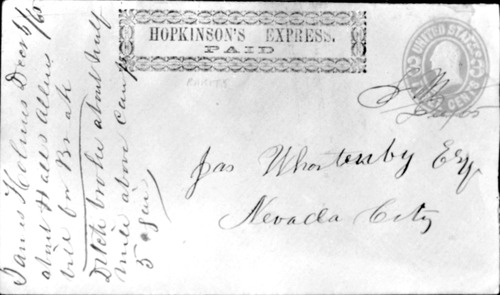 HOPKINSON'S EXPRESS.
PAID
UNITED STATES
CENTS
Jas Whartenby Esq
Nevada City
James Holmes Decr 6/65
about Halls Allens
bill for Break
Ditch broke about half
mile above camp
5